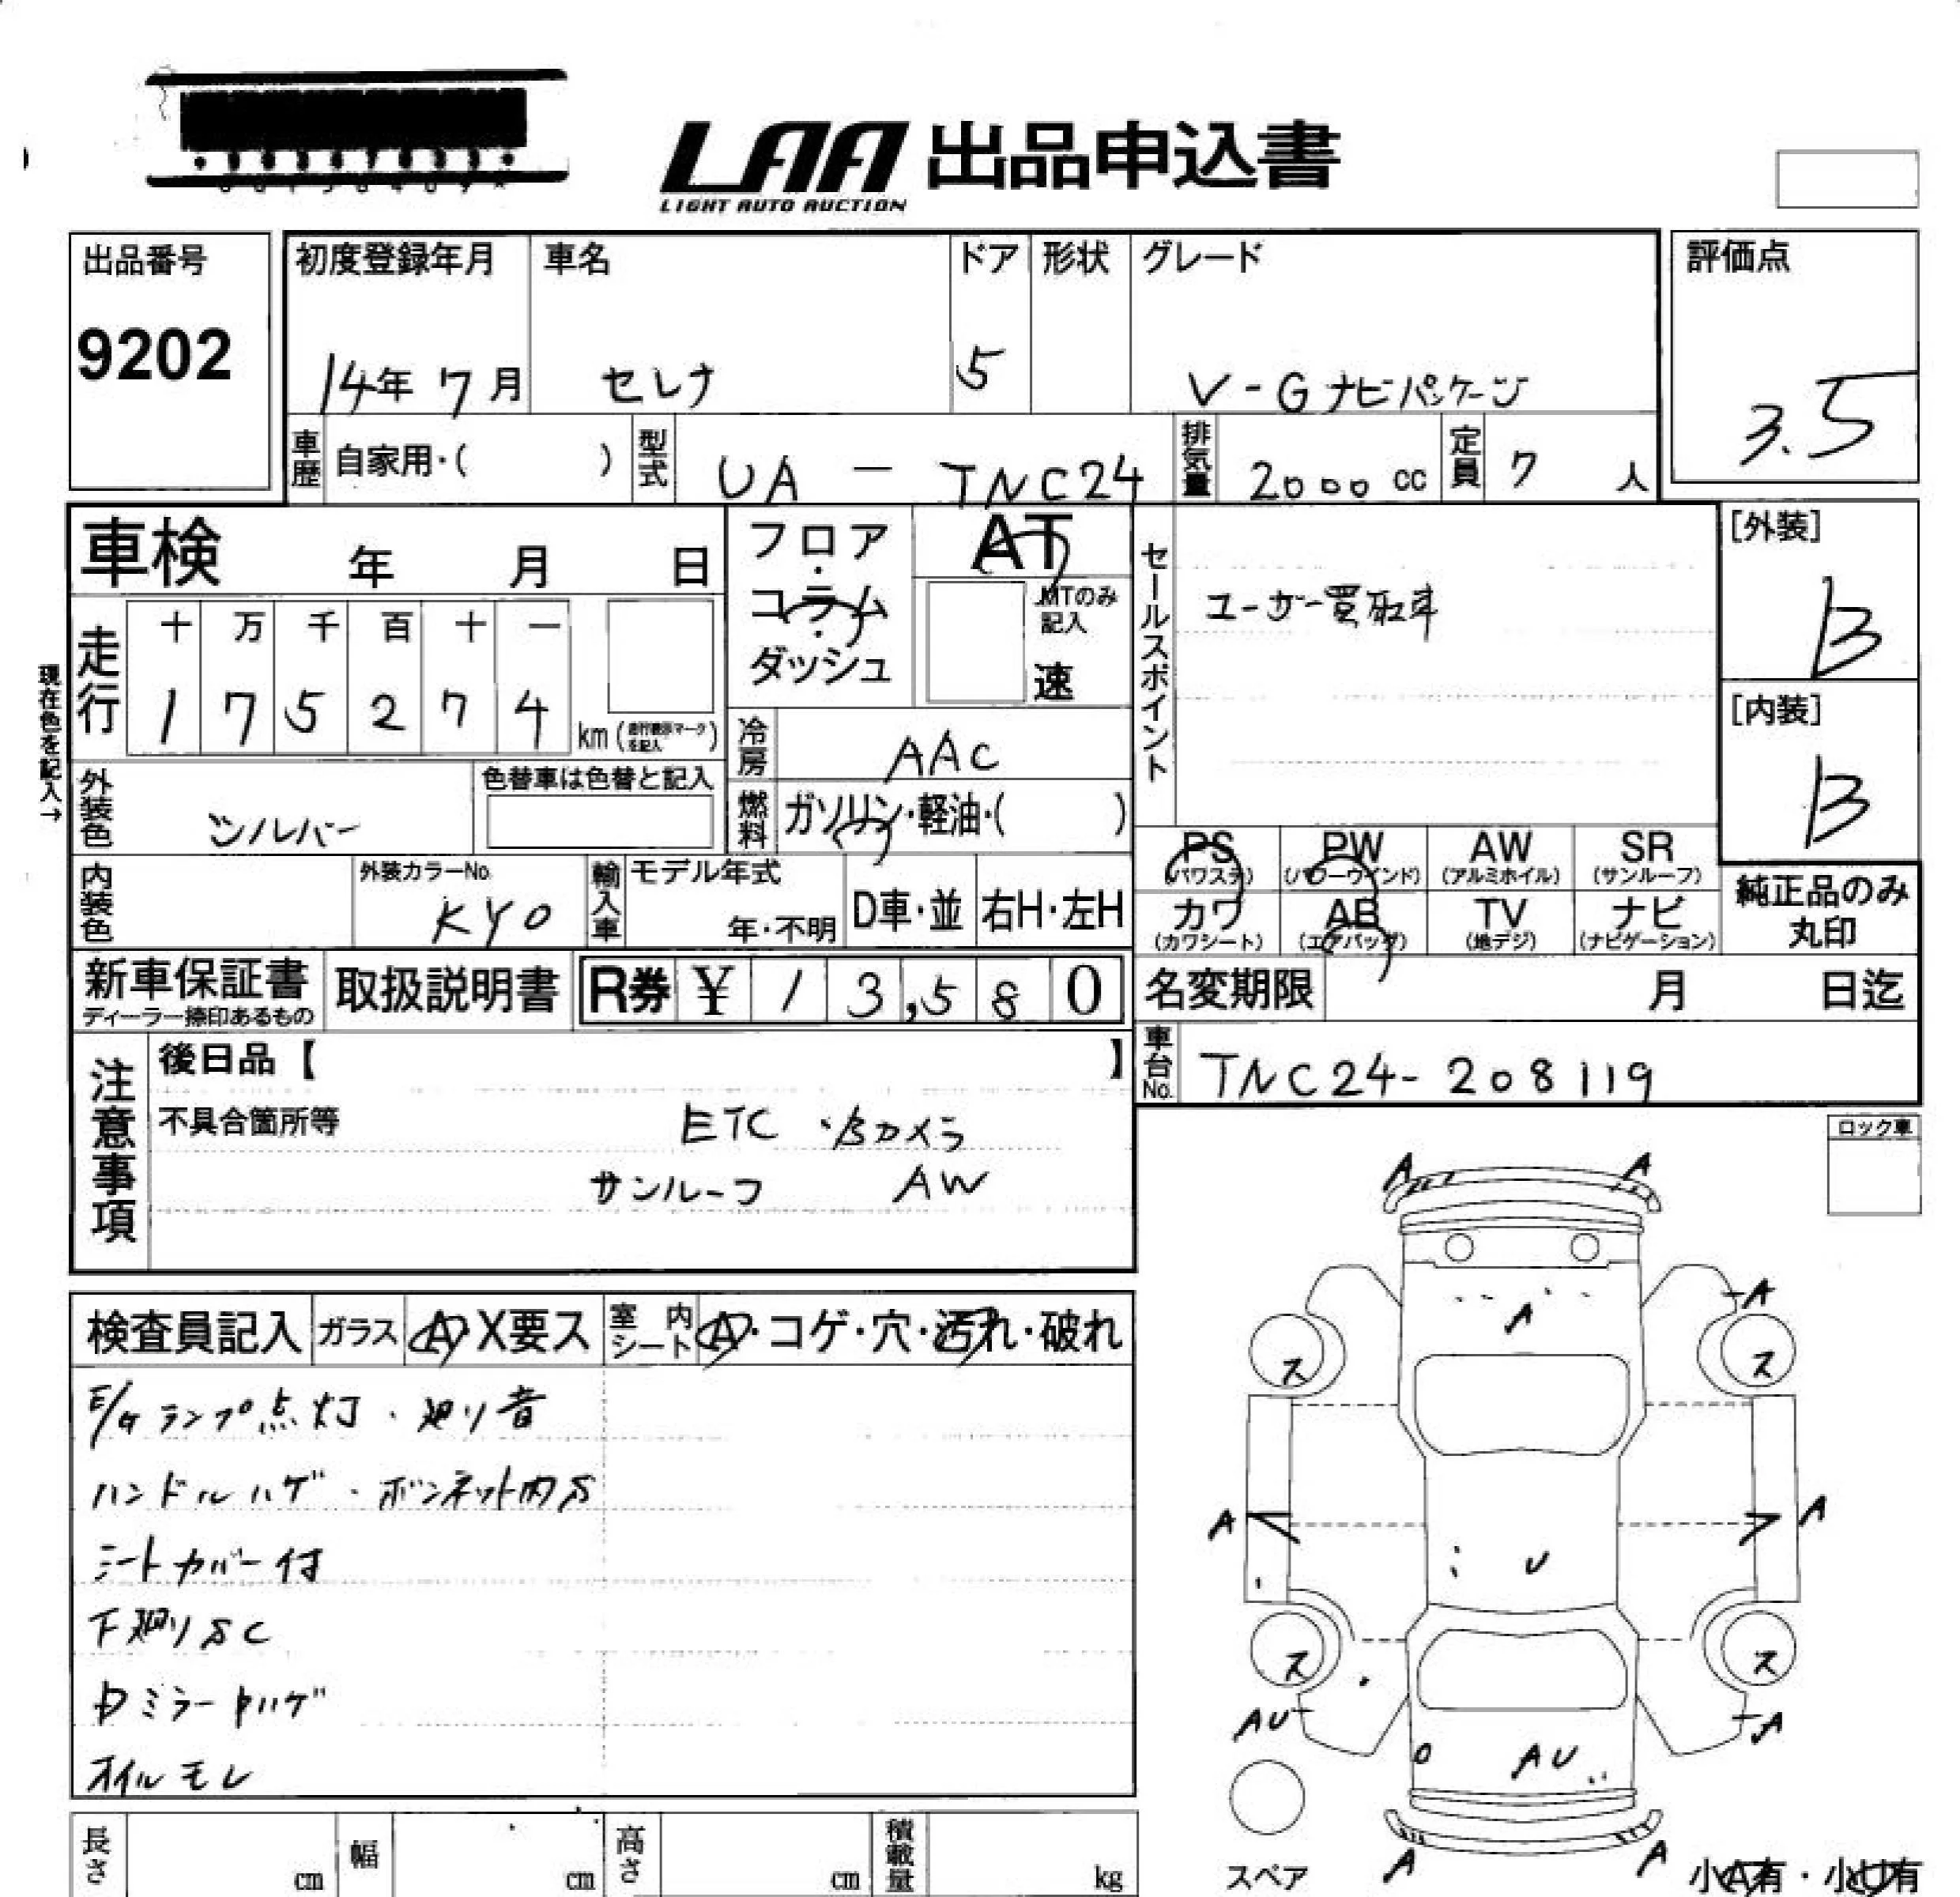 LAA 出品申込書
LIGHT AUTO AUCTION
出品番号
9202
初度登録年月 車名 ドア 形状 グレード
14年 7月 セレナ 5 V-G ナビパッケージ
評価点
3.5
車歴 自家用・( ) 型式 UA - TNC24 排気量 2000 cc 定員 7 人
車検 年 月 日
フロア・コラム・ダッシュ
AT
MTのみ記入
速
セールスポイント
ユーザー買取車
[外装]
B
[内装]
B
現在色を記入→
走行 十 万 千 百 十 一
1 7 5 2 7 4 km (走行表示マークを記入)
冷房 AAC
外装色 シルバー 色替車は色替と記入
燃料 ガソリン・軽油・( )
内装色 外装カラーNo. KY0 輸入車 モデル年式 年・不明 D車・並 右H・左H
PS (パワステ) PW (パワーウインド) AW (アルミホイル) SR (サンルーフ)
カワ (カワシート) AB (エアバッグ) TV (地デジ) ナビ (ナビゲーション)
純正品のみ丸印
新車保証書 ディーラー捺印あるもの 取扱説明書 R券 ¥ 1 3,5 8 0
名変期限 月 日迄
車台No. TNC24-208119
注意事項
後日品【 】
不具合箇所等 ETC ・Bカメラ
サンルーフ AW
ロック車
検査員記入 ガラス A・X要ス 室内シート A・コゲ・穴・汚れ・破れ
E/Gランプ点灯・廻り音
ハンドルハゲ・ボンネット内S
シートカバー付
下廻りSC
ミラー ハゲ
オイルモレ
A A
A
A
ス ス
A A
U
ス ス
AU A
AU
A A
スペア
小A有・小U有
長さ cm 幅 cm 高さ cm 積載量 kg